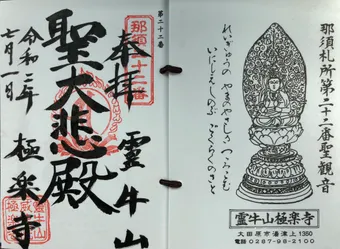 那須札所第二十二番聖観音
れいぎゅうの
いにしえしのぶ ごくらくのさと
霊牛山極楽寺
大田原市湯津上1350
電話 0287-98-2100
第二十二番
那須二十二番
奉拝
霊牛山
聖大悲殿
令和三年
七月一日
極楽寺